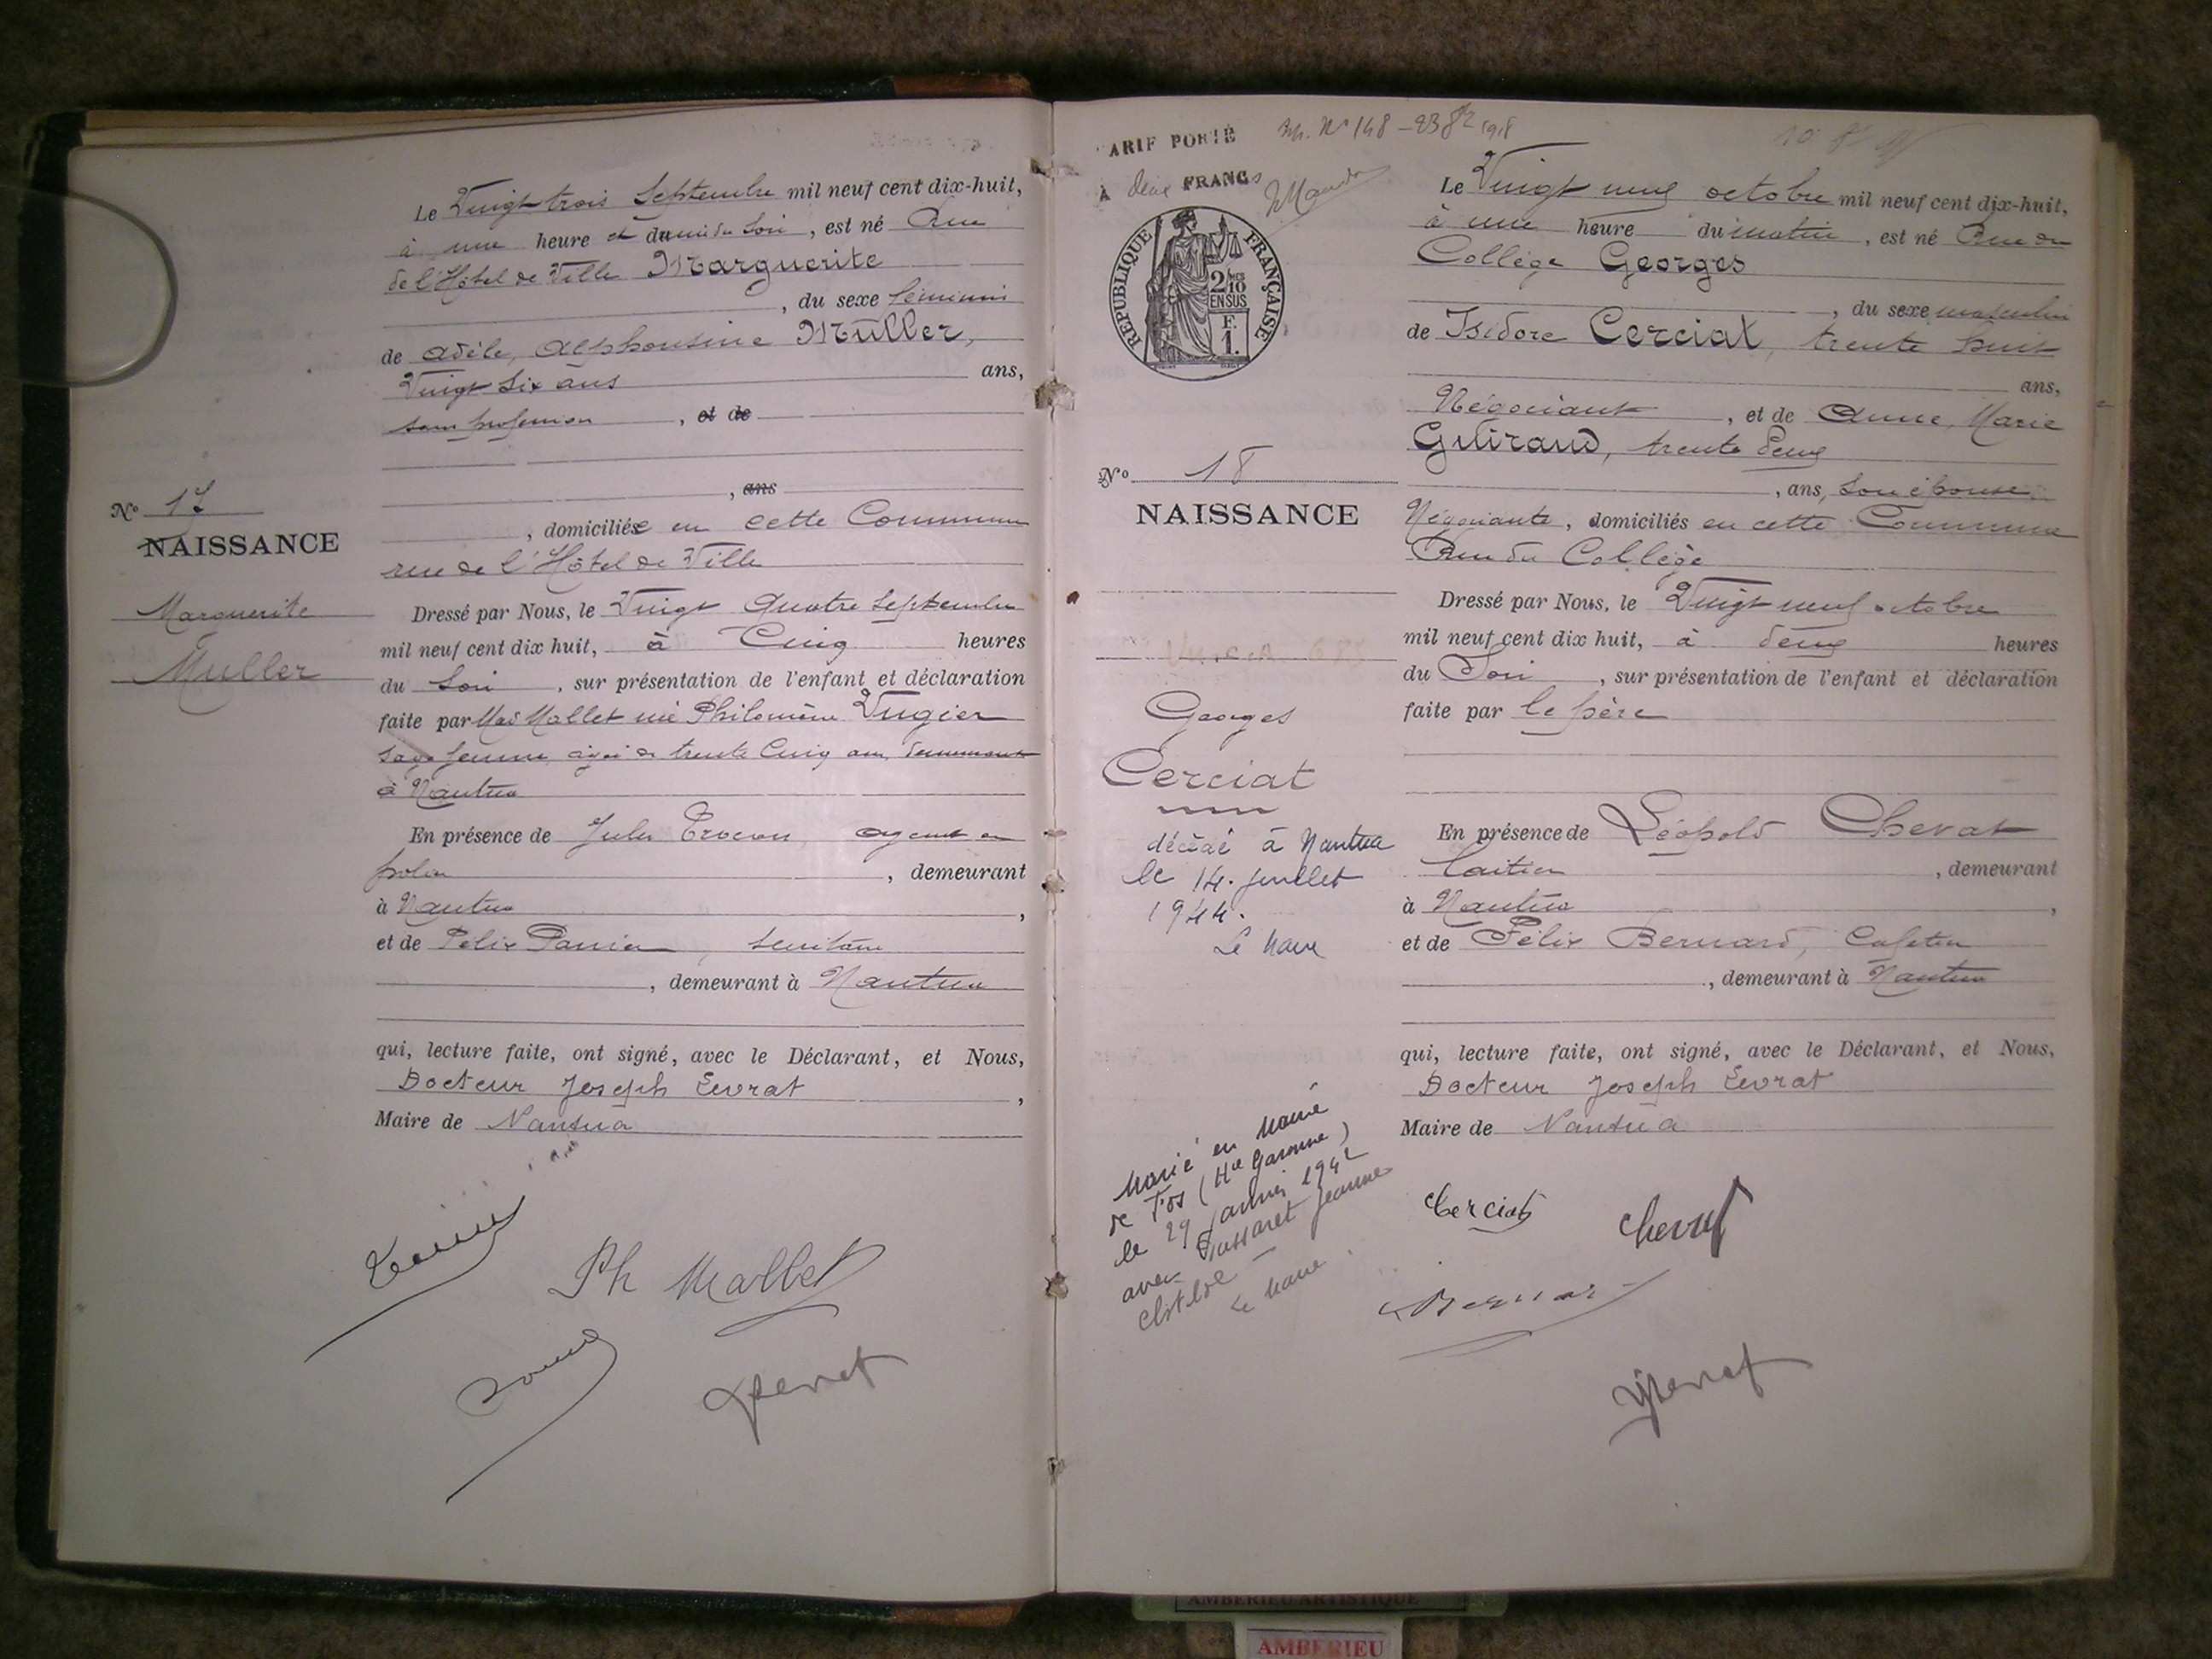 Le Vingt trois Septembre mil neuf cent dix-huit,
à une heure et demie du soir, est né Rue
de l'Hôtel de Ville Marguerite
, du sexe féminin
de Adèle, Alphonsine Müller,
Vingt Six ans ans,
sans profession, et de
, ans
, domiciliée en cette Commune
rue de l'Hôtel de Ville
No 17
NAISSANCE
Marguerite
Muller
Dressé par Nous, le Vingt Quatre Septembre
mil neuf cent dix huit, à Cinq heures
du Soir, sur présentation de l'enfant et déclaration
faite par Mad Mallet née Philomène Vugier
sage femme, agée de trente Cinq ans, demeurant
à Nantua
En présence de Jules agent de
police, demeurant
à Nantua,
et de Félix Panier,
, demeurant à Nantua
qui, lecture faite, ont signé, avec le Déclarant, et Nous,
Docteur Joseph Levrat,
Maire de Nantua
Ph Mallet
ARIF PORTÉ
À deux FRANCs
No 148 1918
RÉPUBLIQUE FRANÇAISE
2/10
EN SUS
F.
1.
No 18
NAISSANCE
Georges
Cerciat
décédé à Nantua
le 14. juillet
1944.
Le Maire
Marié en Mairie
de Fos (Hte Garonne)
le 29 janvier 1942
avec Jeanne
Clotilde
Le Maire
Le Vingt neuf octobre mil neuf cent dix-huit,
à une heure du matin, est né Rue du
Collège Georges
, du sexe masculin
de Isidore Cerciat, trente huit
ans,
Négociant, et de Anne, Marie
Guiraud, trente deux
, ans, son épouse,
Négociante, domiciliés en cette Commune
Rue du Collège
Dressé par Nous, le Vingt neuf octobre
mil neuf cent dix huit, à deux heures
du Soir, sur présentation de l'enfant et déclaration
faite par le père
En présence de Léopold Chevat
laitier, demeurant
à Nantua,
et de Félix Bernard, Cafetier
, demeurant à Nantua
qui, lecture faite, ont signé, avec le Déclarant, et Nous,
Docteur Joseph Levrat
Maire de Nantua
Cerciat
Chevat
Bernard
AMBERIEU ARTISTIQUE
AMBERIEU